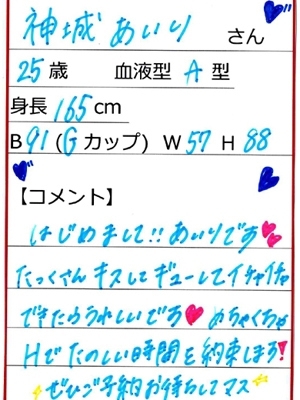 神城あいり さん
25歳 血液型 A 型
身長 165 cm
B 91 (G カップ) W 57 H 88
【コメント】
はじめまして!!あいりです
たっくさんキスしてギューしてイチャイチャ
できたらうれしいです めちゃくちゃ
Hでたのしい時間を約束しまう!
ぜひご予約お待ちしてマス